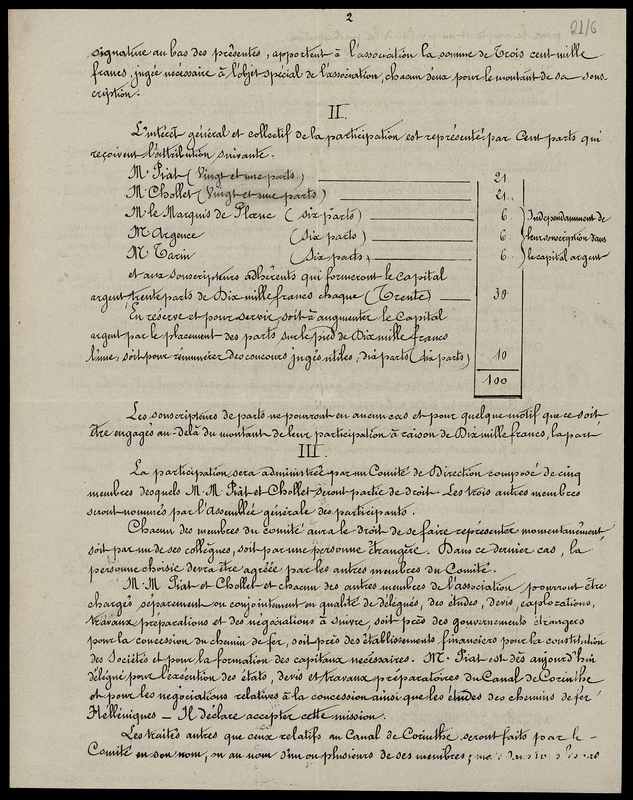 2
21/6
signature au bas des présentes, apportent à l'association la somme de Trois cent mille
francs, jugée nécessaire à l'objet spécial de l'association, chacun d'eux pour le montant de sa sous
cription.
II.
L'intérêt général et collectif de la participation est représenté par Cent parts qui
reçoivent l'attribution suivante.
M. Piat (Vingt et une parts) 21
M. Chollet (Vingt et une parts) 21.
M. le Marquis de Plœuc (six parts) 6. Indépendamment de
M. Argence (Six parts) 6. leur souscription dans
M. Tarin (Six parts) 6. le capital argent
et aux souscripteurs adhérents qui formeront le capital
argent trente parts de Dix mille francs chaque (Trente) 30
En réserve et pour servir, soit à augmenter le Capital
argent par le placement des parts sur le pied de Dix mille francs
l'une, soit pour rémunérer des concours jugés utiles, dix parts (dix parts) 10
100
Les souscripteurs de parts ne pourront en aucun cas et pour quelque motif que ce soit
être engagés au delà du montant de leur participation à raison de Dix mille francs, la part
III.
La participation sera administrée par un Comité de Direction composé de cinq
membres desquels M. M. Piat et Chollet seront partie de droit. Les trois autres membres
seront nommés par l'Assemblée générale des participants.
Chacun des membres du comité aura le droit de se faire représenter momentanément
soit par un de ses collègues, soit par une personne étrangère. Dans ce dernier cas, la
personne choisie devra être agréée par les autres membres du Comité.
M. M. Piat et Chollet et chacun des autres membres de l'association pourront être
chargés séparément ou conjointement en qualité de délégués, des études, devis, explorations,
travaux préparations et des négociations à suivre, soit près des gouvernements étrangers
pour la concession du chemin de fer, soit près des établissements financiers pour la constitution
des Sociétés et pour la formation des capitaux nécessaires. M. Piat est dès aujourd'hui
délégué pour l'exécution des états, devis et travaux préparatoires du Canal de Corinthe
et pour les négociations relatives à la concession ainsi que les études des chemins de fer
Helléniques — Il déclare accepter cette mission.
Les traités autres que ceux relatifs au Canal de Corinthe seront faits par le
Comité en son nom, ou au nom d'un ou plusieurs de ses membres;